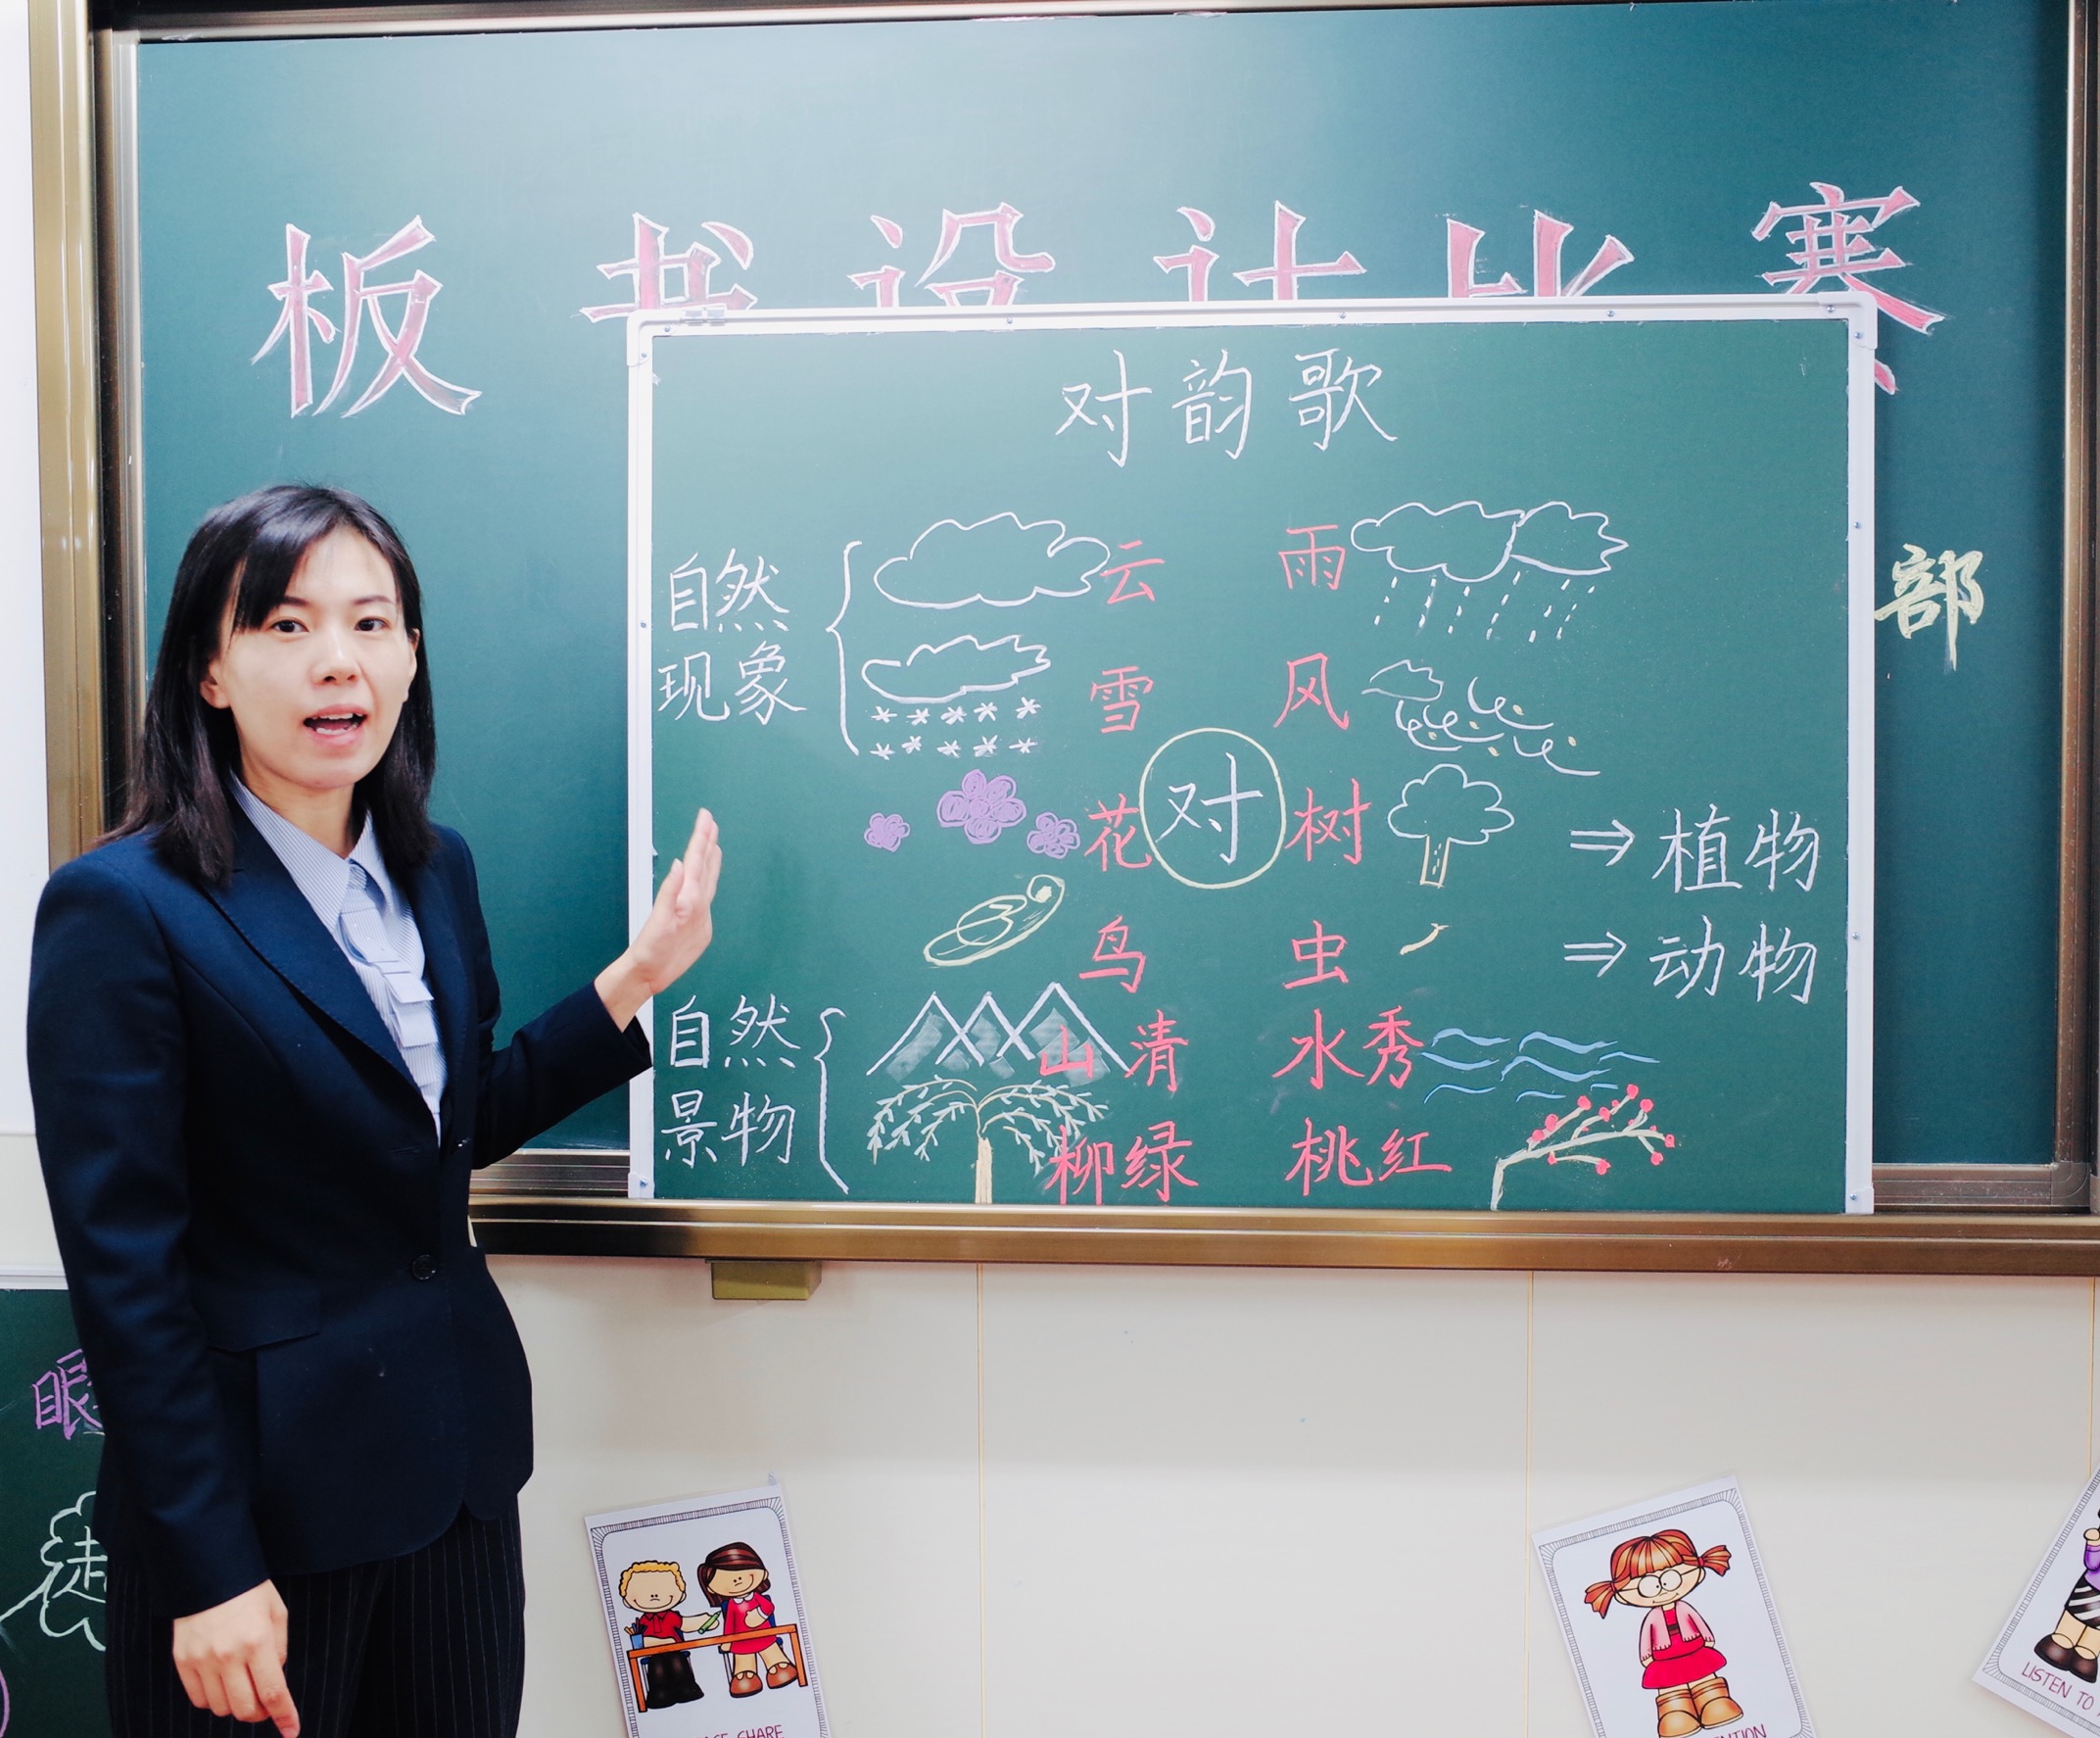 板书设计比赛
对韵歌
部
自然
现象
云 雨
雪 风
花 对 树 ⇒ 植物
鸟 虫 ⇒ 动物
自然
景物
山清 水秀
柳绿 桃红
眼
徒
SHARE
LISTEN TO